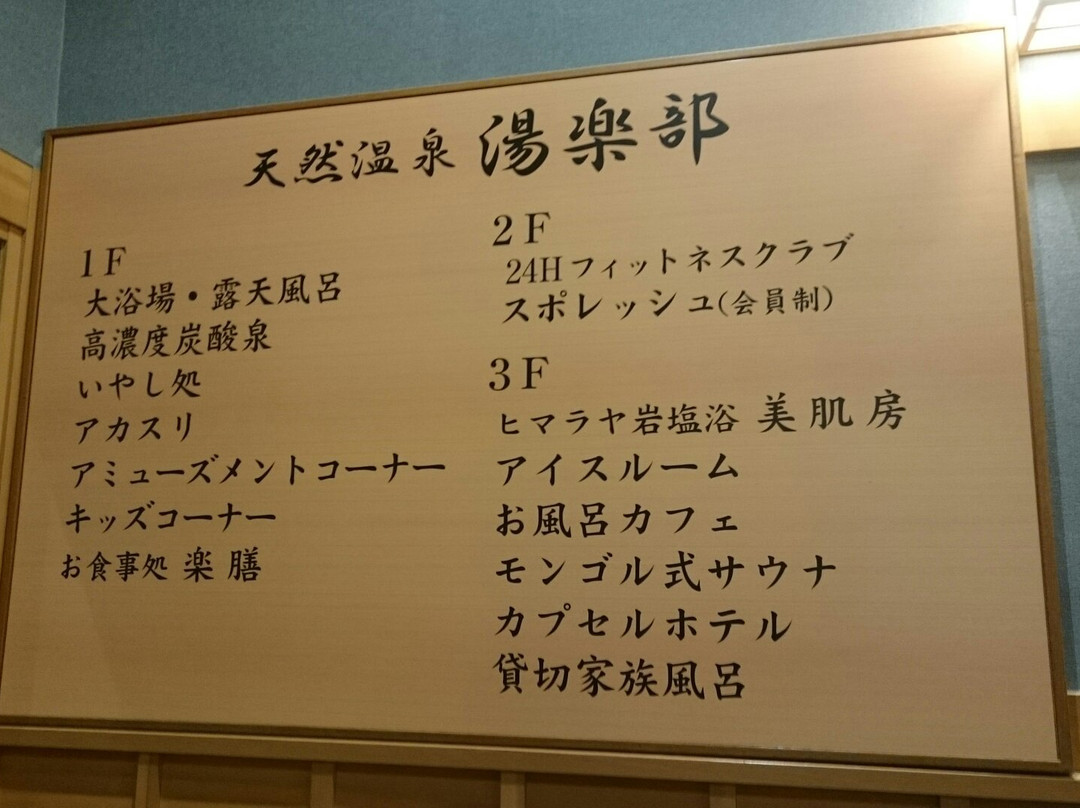 天然温泉 湯楽部
1F
大浴場・露天風呂
高濃度炭酸泉
いやし処
アカスリ
アミューズメントコーナー
キッズコーナー
お食事処 楽膳
2F
24Hフィットネスクラブ
スポレッシュ(会員制)
3F
ヒマラヤ岩塩浴 美肌房
アイスルーム
お風呂カフェ
モンゴル式サウナ
カプセルホテル
貸切家族風呂